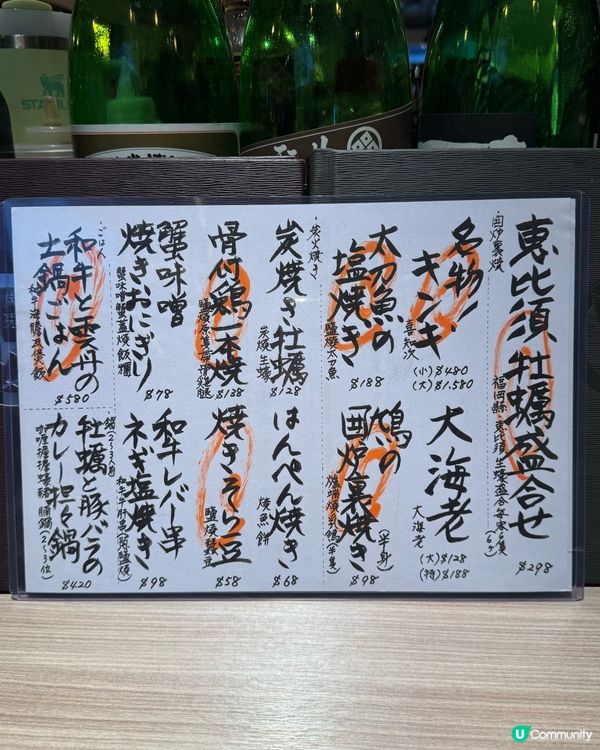 恵比須牡蠣盛合せ
福岡縣・惠比須 生蠔盛合每客6隻
$298
・囲炉裏焼
名物!キンキ
喜知次
(小)$480
(大)$1.580
大海老
大海老
(大)$128
(特)$188
太刀魚の塩焼き
鹽燒太刀魚
$188
鳩の囲炉裏焼き(半身)
爐端燒乳鴿(半隻)
$98
・炭火焼き
炭焼き牡蠣
炭燒生蠔
$128
はんぺん焼き
燒魚餅
$68
骨付鶏一本焼
$138
焼きそら豆
鹽燒蠶豆
$58
蟹味噌焼きおにぎり
蟹味噌蟹蓋燒飯糰
$78
和牛レバー串ネギ塩焼き
和牛肝串
$98
・ごはん
和牛と雲丹の土鍋ごはん
和牛海膽土鍋飯
$580
鍋(2〜3人前)
牡蠣と豚バラのカレー坦々鍋
(2〜3位)
$420
STANLEY
U Community